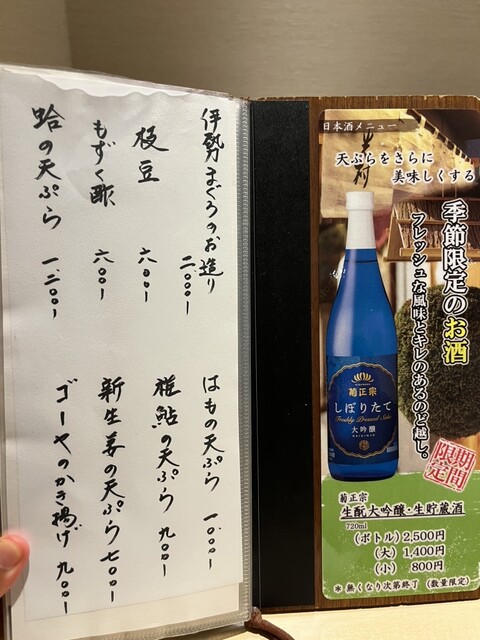 伊勢まぐろのお造り 二、〇〇〇ー
枝豆 六〇〇ー
もずく酢 六〇〇ー
蛤の天ぷら 一、二〇〇ー
はもの天ぷら 一、〇〇〇ー
稚鮎の天ぷら 九〇〇ー
新生姜の天ぷら 七〇〇ー
ゴーヤのかき揚げ 九〇〇ー
日本酒メニュー
天ぷらをさらに
美味しくする
季節限定のお酒
フレッシュな風味とキレのあるのど越し。
菊正宗
しぼりたて
Freshly Pressed Sake
大吟醸
DAIGINJO
期間
限定
菊正宗
生酛大吟醸・生貯蔵酒
720ml
(ボトル) 2,500円
(大) 1,400円
(小) 800円
＊無くなり次第終了 (数量限定)